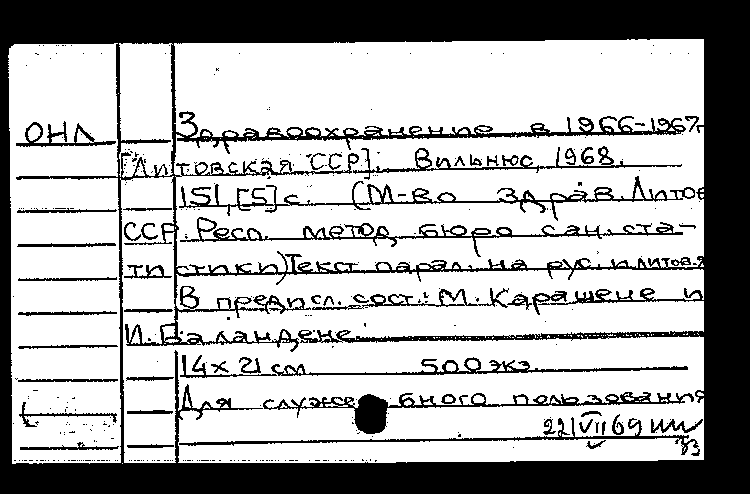 ОНЛ
Здравоохранение в 1966-1967г
[Литовская ССР]. Вильнюс, 1968.
151,[5]с. (М-во здрав. Литов
ССР. Респ. метод. бюро сан. ста-
тистики) Текст парал. на рус. и литов.я
В предисл. сост.: М. Карашене и
И. Баландене.
14х21 см 500 экз.
Для служебного пользования
22/VII 69